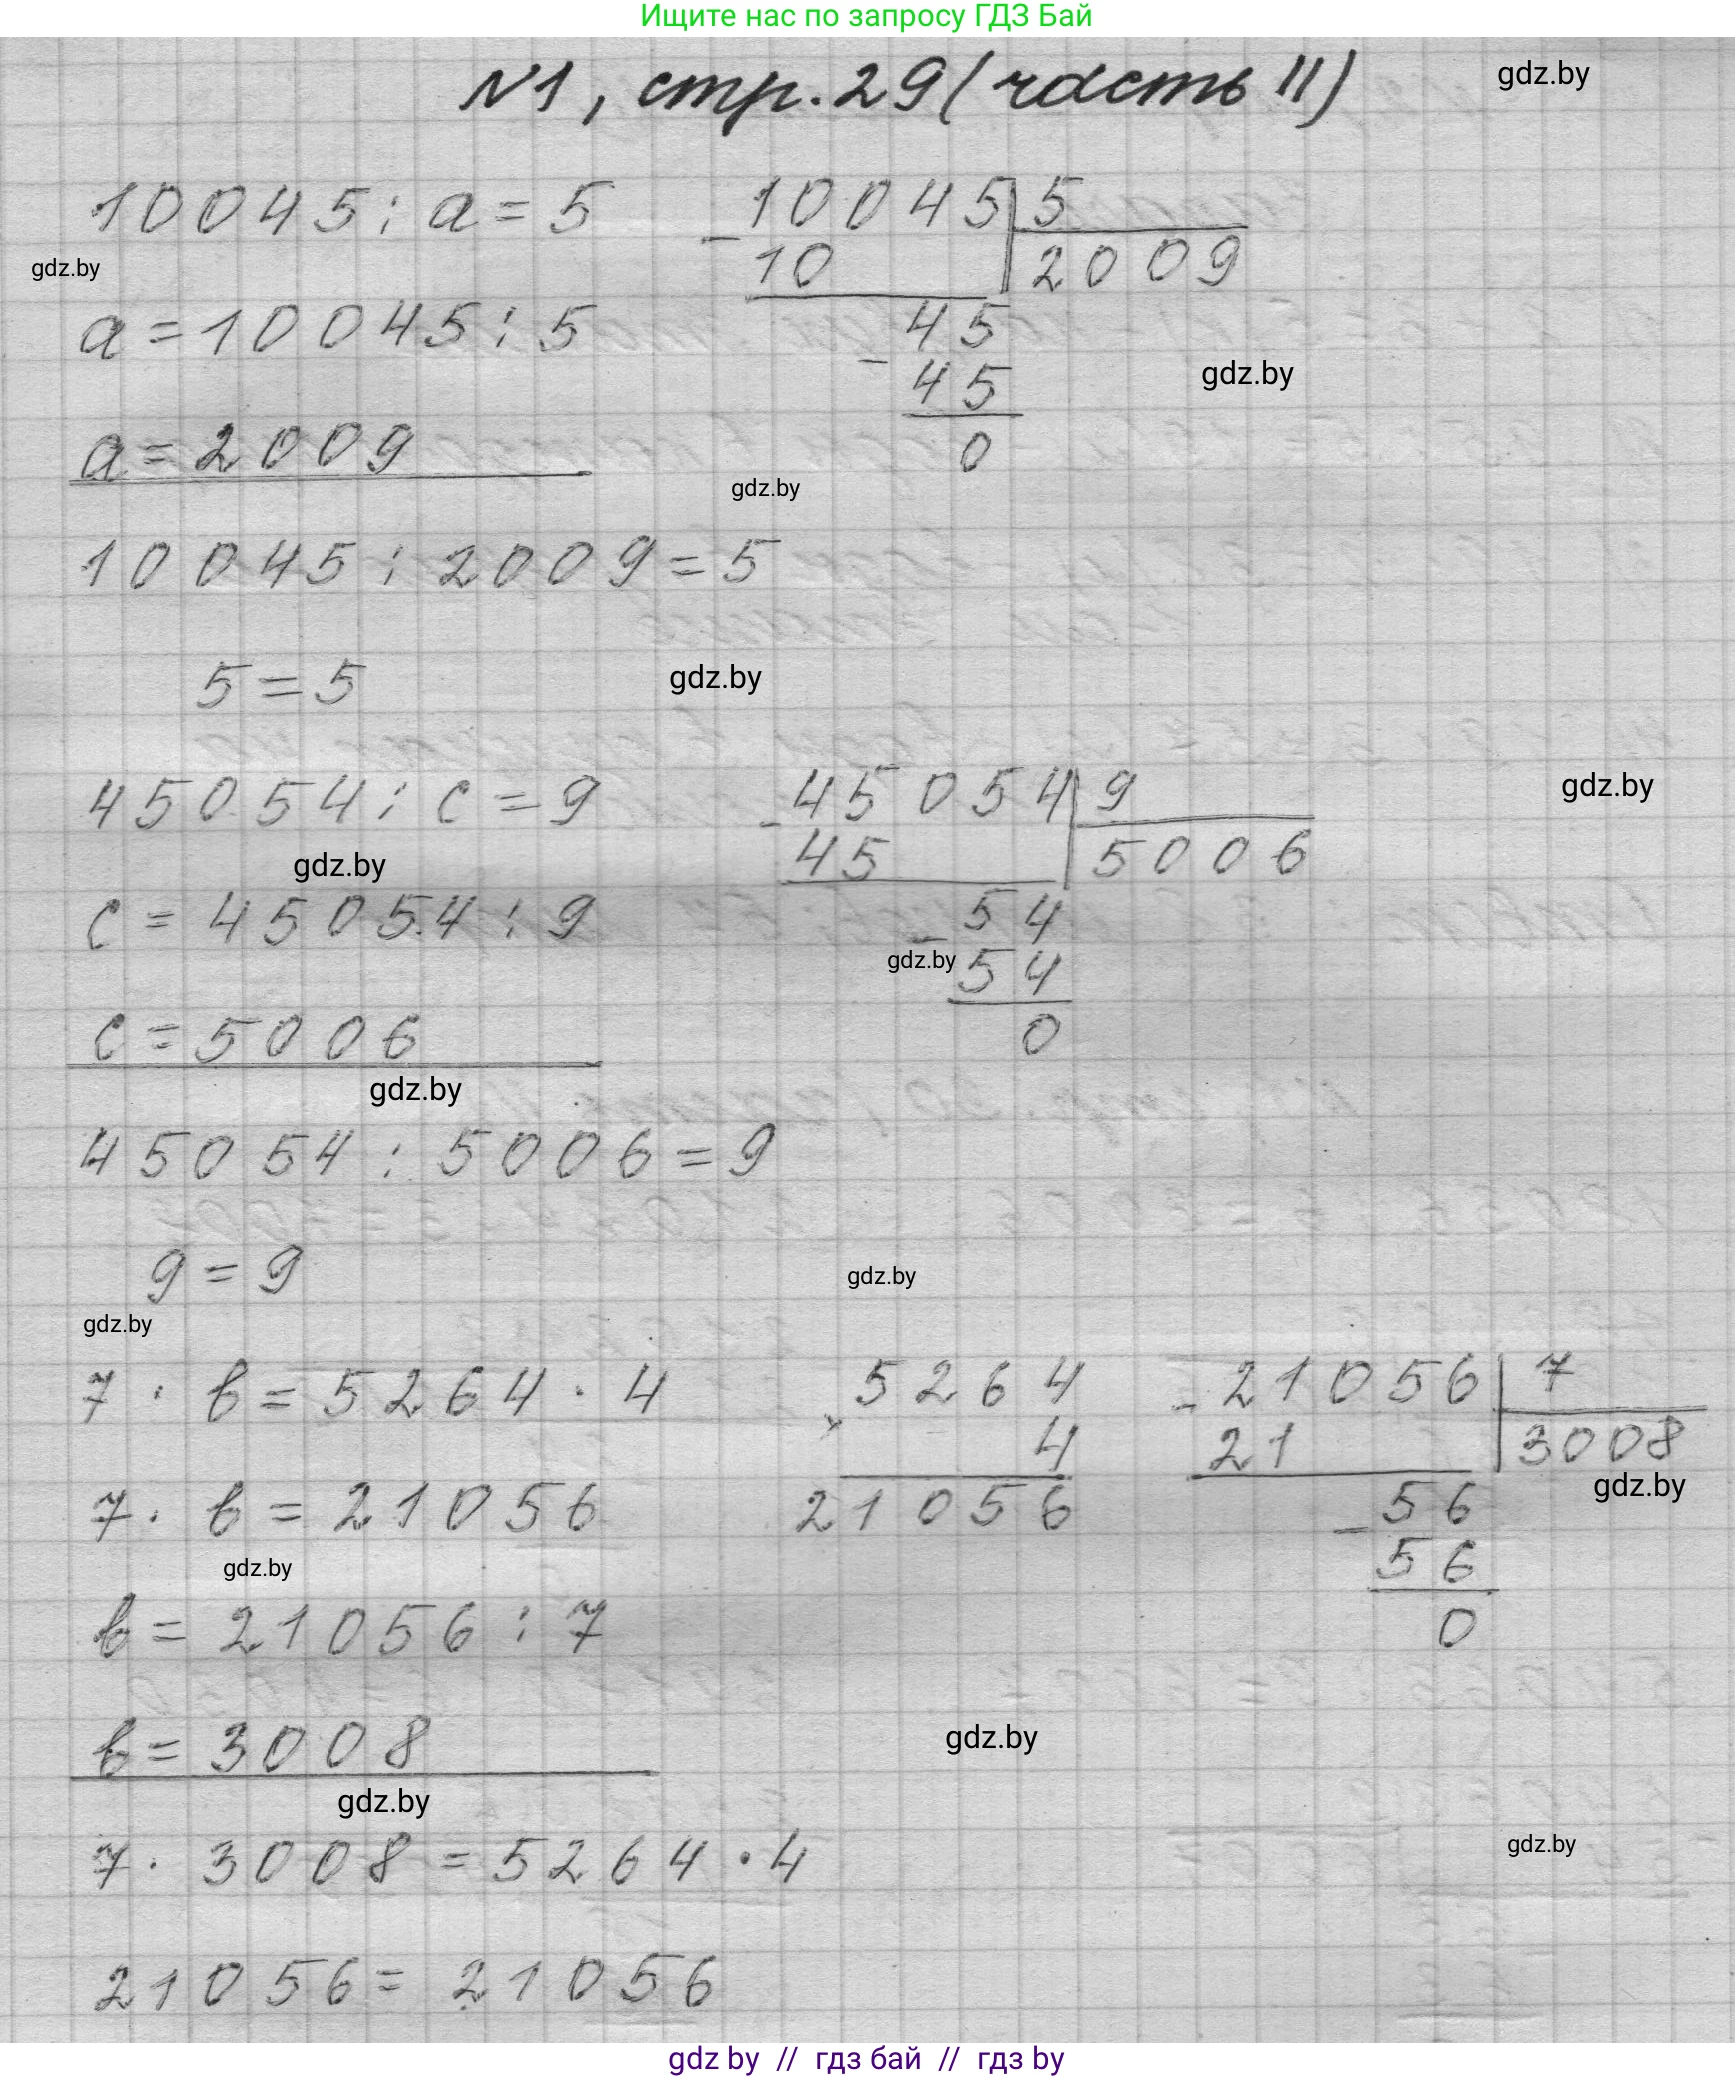 Ищите нас по запросу ГДЗ Бай
№1, стр. 29 (часть II)
gdz.by
10045 : a = 5
10045 | 5
gdz.by
- 10 | 2009
a = 10045 : 5
45
gdz.by
- 45
0
a = 2009
gdz.by
10045 : 2009 = 5
5 = 5
gdz.by
45054 : c = 9
45054 | 9
gdz.by
- 45 | 5006
gdz.by
c = 45054 : 9
54
gdz.by
- 54
0
c = 5006
gdz.by
45054 : 5006 = 9
9 = 9
gdz.by
gdz.by
7 · b = 5264 · 4
5264
× 4
21056
21056 | 7
- 21 | 3008
gdz.by
56
- 56
0
7 · b = 21056
gdz.by
b = 21056 : 7
b = 3008
gdz.by
gdz.by
7 · 3008 = 5264 · 4
gdz.by
21056 = 21056
gdz by // гдз бай // гдз by